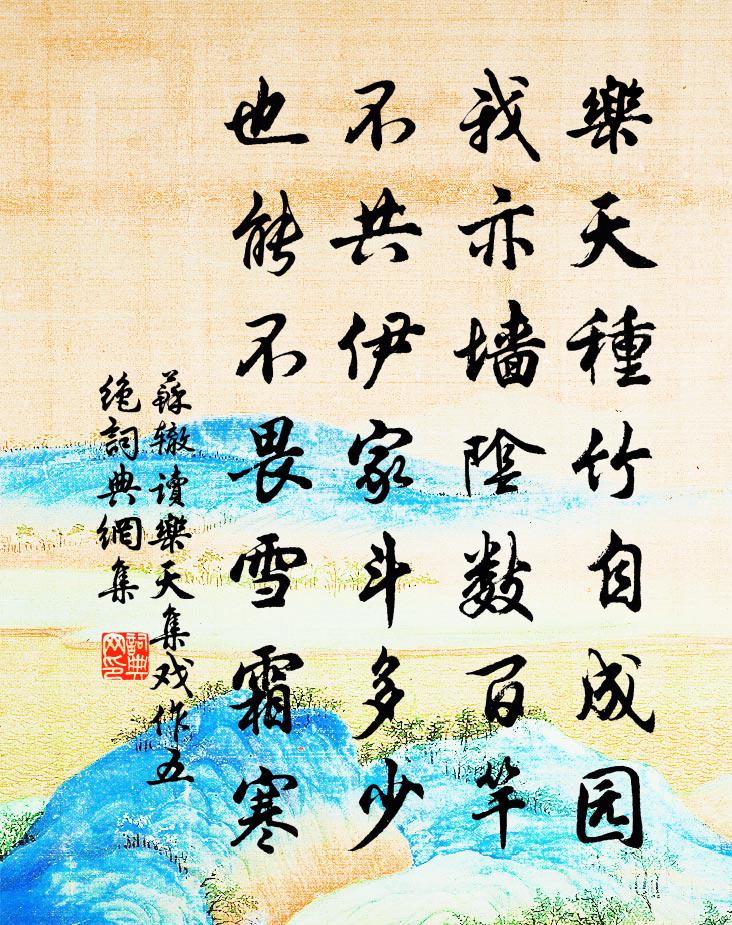 樂天種竹自成园
我亦墙陰数百竿
不共伊家斗多少
也能不畏雪霜寒
蘇辙读樂天集戏作五
绝詞典網集
詞典
网印